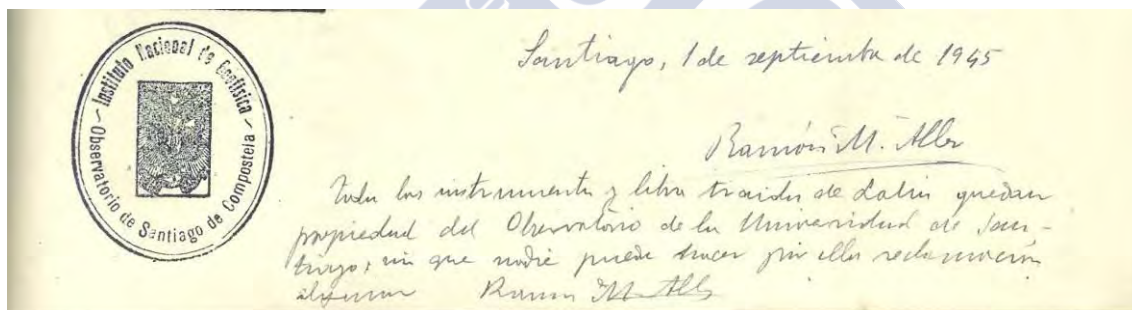 Instituto Nacional de Geofísica
Observatorio de Santiago de Compostela
Santiago, 1 de septiembre de 1945
Ramón M. Aller
Todos los instrumentos y libros traidos de Lalín quedan
propiedad del Observatorio de la Universidad de San-
tiago, sin que nadie pueda hacer por ellos reclamación
alguna Ramon M. Aller